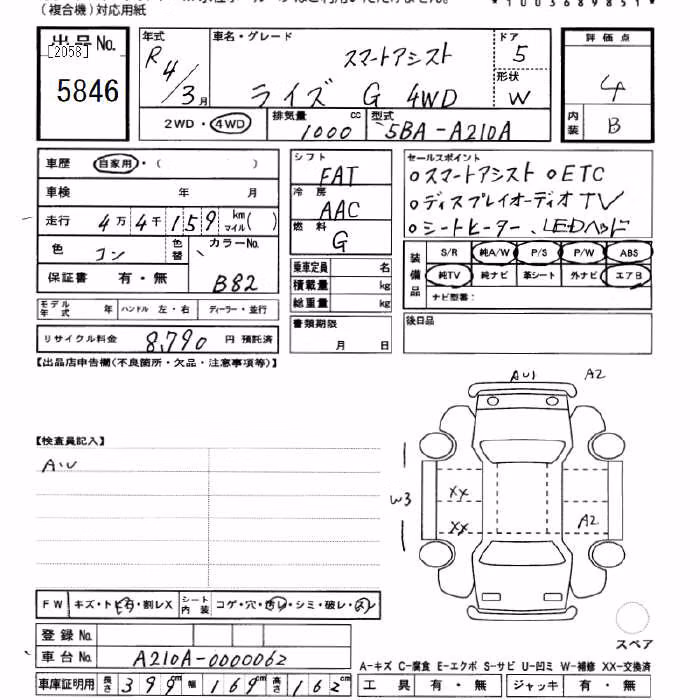 (複合機)対応用紙
*1003689851*
出品No.
[2058]
5846
年式
R 4/3月
車名・グレード
スマートアシスト
ライズ G 4WD
ドア
5
形状
W
評価点
4
内装
B
2WD・4WD
排気量 1000 cc
型式 5BA-A210A
車歴 自家用・( )
車検 年 月
走行 4万4千159 km マイル( )
色 コン 色替 カラーNo. B82
保証書 有・無
モデル年式 年 ハンドル 左・右 ディーラー・並行
リサイクル料金 8,790 円 預託済
シフト
FAT
冷房
AAC
燃料
G
乗車定員 名
積載量 kg
総重量 kg
書類期限
月 日
セールスポイント
○スマートアシスト ○ETC
○ディスプレイオーディオTV
○シートヒーター、LEDヘッド
装備品
S/R 純A/W P/S P/W ABS
純TV 純ナビ 革シート 外ナビ エアB
ナビ型番:
後日品
【出品店申告欄(不良箇所・欠品・注意事項等)】
【検査員記入】
AU1 A2
W3
XX
XX A2
スペア
FW キズ・トビ石・割レX シート内装 コゲ・穴・汚レ・シミ・破レ・スレ
登録No.
車台No. A210A-0000062
車庫証明用 長さ 399 cm 幅 169 cm 高さ 162 cm
A-キズ C-腐食 E-エクボ S-サビ U-凹ミ W-補修 XX-交換済
工具 有・無 ジャッキ 有・無